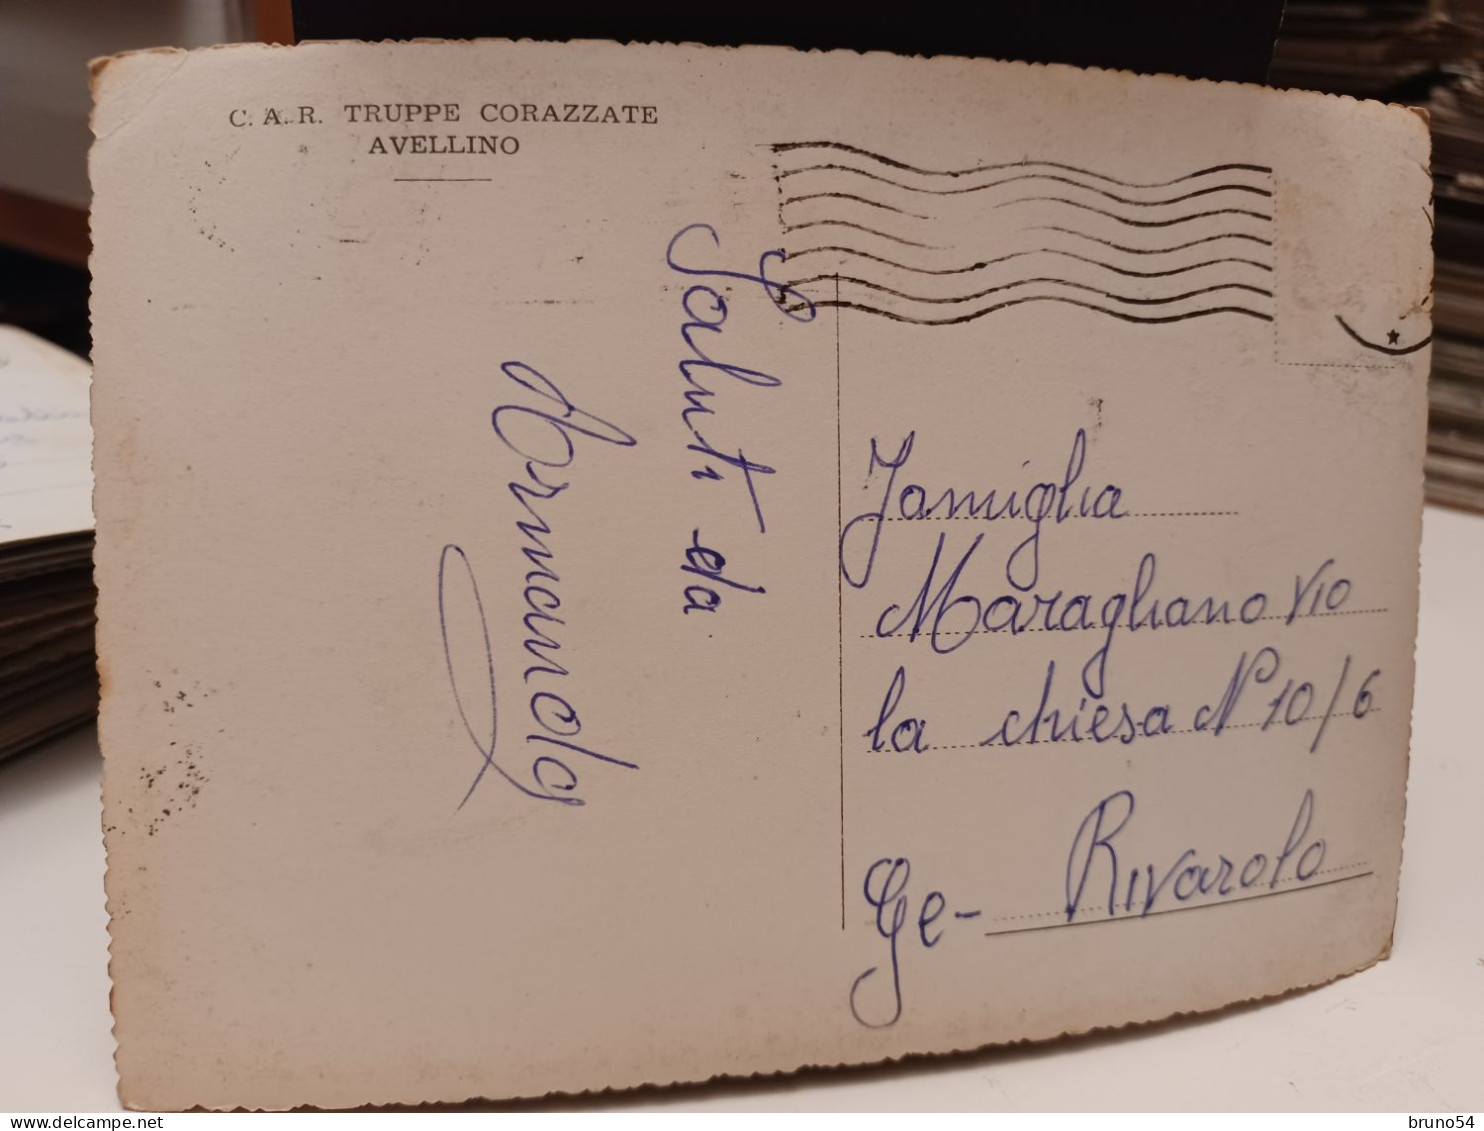 C. A. R. TRUPPE CORAZZATE
AVELLINO
Saluti da
Armando
Famiglia
Maragliano Via
la chiesa N 10/6
Ge- Rivarolo
delcampe.net
bruno54